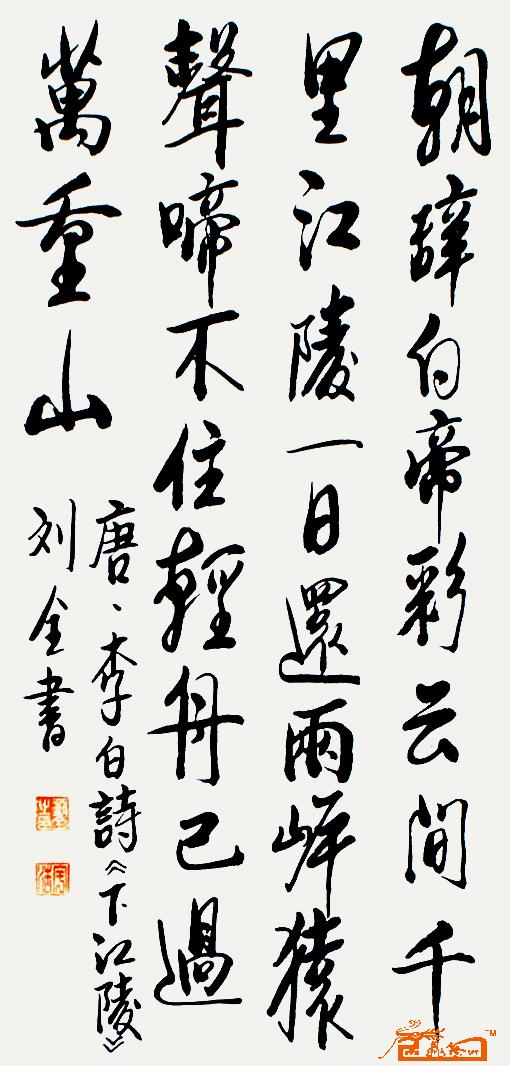 朝辞白帝彩云間千
里江陵一日還兩岸猿
聲啼不住輕舟已過
萬重山
唐、李白詩《下江陵》
刘全書